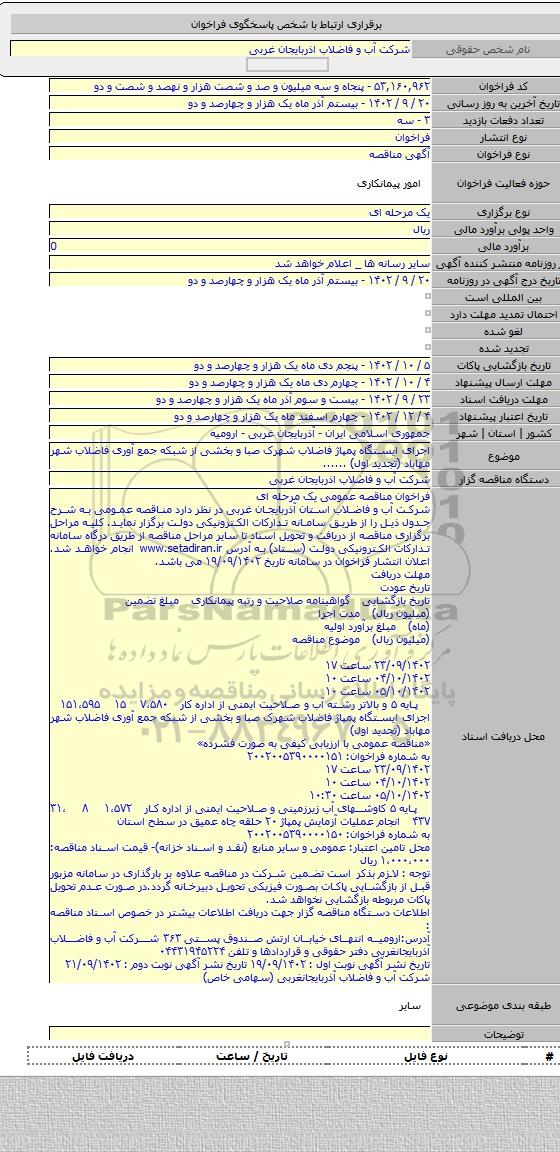 برقراری ارتباط با شخص پاسخگوی فراخوان
نام شخص حقوقی شرکت آب و فاضلاب آذربایجان غربی
کد فراخوان ۵۳,۱۶۰,۹۶۲ - پنجاه و سه میلیون و صد و شصت هزار و نهصد و شصت و دو
تاریخ آخرین به روز رسانی ۲۰ / ۹ / ۱۴۰۲ - بیستم آذر ماه یک هزار و چهارصد و دو
تعداد دفعات بازدید ۳ - سه
نوع انتشار فراخوان
نوع فراخوان آگهی مناقصه
حوزه فعالیت فراخوان امور پیمانکاری
نوع برگزاری یک مرحله ای
واحد پولی برآورد مالی ریال
برآورد مالی 0
روزنامه منتشر کننده آگهی سایر رسانه ها _ اعلام خواهد شد
تاریخ درج آگهی در روزنامه ۲۰ / ۹ / ۱۴۰۲ - بیستم آذر ماه یک هزار و چهارصد و دو
بین المللی است
احتمال تمدید مهلت دارد
لغو شده
تجدید شده
تاریخ بازگشایی پاکات ۵ / ۱۰ / ۱۴۰۲ - پنجم دی ماه یک هزار و چهارصد و دو
مهلت ارسال پیشنهاد ۴ / ۱۰ / ۱۴۰۲ - چهارم دی ماه یک هزار و چهارصد و دو
مهلت دریافت اسناد ۲۳ / ۹ / ۱۴۰۲ - بیست و سوم آذر ماه یک هزار و چهارصد و دو
تاریخ اعتبار پیشنهاد ۴ / ۱۲ / ۱۴۰۲ - چهارم اسفند ماه یک هزار و چهارصد و دو
کشور | استان | شهر جمهوری اسلامی ایران - آذربایجان غربی - ارومیه
موضوع اجرای ایستگاه پمپاژ فاضلاب شهرک صبا و بخشی از شبکه جمع آوری فاضلاب شهر
مهاباد (تجدید اول) ......
دستگاه مناقصه گزار شرکت آب و فاضلاب آذربایجان غربی
محل دریافت اسناد
فراخوان مناقصه عمومی یک مرحله ای
شرکت آب و فاضلاب استان آذربایجان غربی در نظر دارد مناقصه عمومی به شرح
جدول ذیل را از طریق سامانه تدارکات الکترونیکی دولت برگزار نماید. کلیه مراحل
برگزاری مناقصه از دریافت و تحویل اسناد تا سایر مراحل مناقصه از طریق درگاه سامانه
تدارکات الکترونیکی دولت (ستاد) به آدرس www.setadiran.ir انجام خواهد شد.
اعلان انتشار فراخوان در سامانه تاریخ ۱۹/۰۹/۱۴۰۲ می باشد.
مهلت دریافت
تاریخ عودت
تاریخ بازگشایی گواهینامه صلاحیت و رتبه پیمانکاری مبلغ تضمین
(میلیون ریال) مدت اجرا
(ماه) مبلغ برآورد اولیه
(میلیون ریال) موضوع مناقصه
۲۳/۰۹/۱۴۰۲ ساعت ۱۷
۰۴/۱۰/۱۴۰۲ ساعت ۱۰
۰۵/۱۰/۱۴۰۲ ساعت ۱۰
پایه ۵ و بالاتر رشته آب و صلاحیت ایمنی از اداره کار ۷،۵۸۰ ۱۵ ۱۵۱،۵۹۵
اجرای ایستگاه پمپاژ فاضلاب شهرک صبا و بخشی از شبکه جمع آوری فاضلاب شهر
مهاباد (تجدید اول)
«مناقصه عمومی با ارزیابی کیفی به صورت فشرده»
به شماره فراخوان: ۲۰۰۲۰۰۵۳۹۰۰۰۰۱۵۱
۲۳/۰۹/۱۴۰۲ ساعت ۱۷
۰۴/۱۰/۱۴۰۲ ساعت ۱۰
۰۵/۱۰/۱۴۰۲ ساعت ۱۰:۳۰
پایه ۵ کاوشهای آب زیرزمینی و صلاحیت ایمنی از اداره کار ۱،۵۷۲ ۸ ۳۱،
۴۳۷ انجام عملیات آزمایش پمپاژ ۲۰ حلقه چاه عمیق در سطح استان
به شماره فراخوان: ۲۰۰۲۰۰۵۳۹۰۰۰۰۱۵۰
محل تامین اعتبار: عمومی و سایر منابع (نقد و اسناد خزانه)- قیمت اسناد مناقصه:
۱،۰۰۰،۰۰۰ ریال
توجه : لازم بذکر است تضمین شرکت در مناقصه علاوه بر بارگذاری در سامانه مزبور
قبل از بازگشایی پاکات بصورت فیزیکی تحویل دبیرخانه گردد.در صورت عدم تحویل
پاکات مربوطه بازگشایی نخواهد شد.
اطلاعات دستگاه مناقصه گزار جهت دریافت اطلاعات بیشتر در خصوص اسناد مناقصه
:
آدرس:ارومیه انتهای خیابان ارتش صندوق پستی ۳۶۳ شرکت آب و فاضلاب
آذربایجانغربی دفتر حقوقی و قراردادها و تلفن ۰۴۴۳۱۹۴۵۲۲۴
تاریخ نشر آگهی نوبت اول : ۱۹/۰۹/۱۴۰۲ تاریخ نشر آگهی نوبت دوم : ۲۱/۰۹/۱۴۰۲
شرکت آب و فاضلاب آذربایجانغربی (سهامی خاص)
طبقه بندی موضوعی سایر
توضیحات
# نوع فایل تاریخ / ساعت دریافت فایل
ParsNamadData
مرکز فرآوری اطلاعات پارس نماد داده ها
پایگاه اطلاع رسانی مناقصه و مزایده
۰۲۱-۸۸۳۴۹۶۷۰